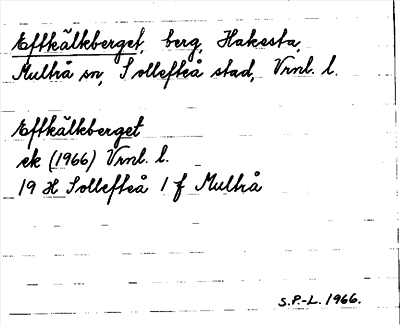 Eftkälkberget, berg, Hakesta,
Multrå sn, Sollefteå stad, Vrnl. l.
Eftkälkberget
ek (1966) Vrnl. l.
19 H Sollefteå 1 f Multrå
S.P.-L. 1966.